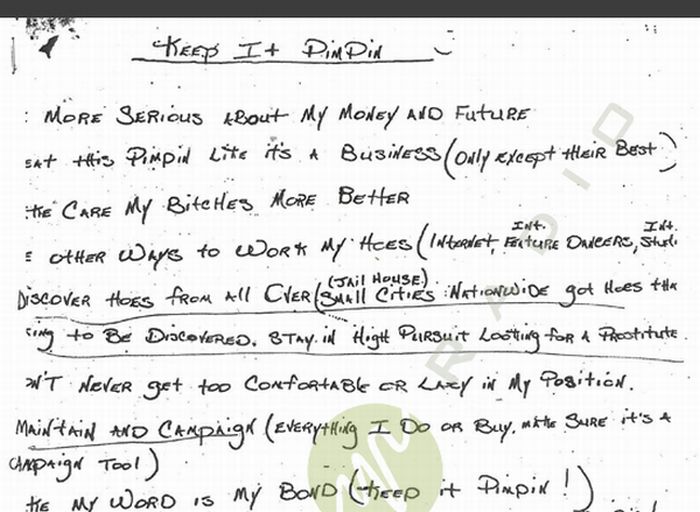 KEEP It PIMPIN
: MORE SERIOUS ABOUT MY MONEY AND FUTURE
EAT tHiS PIMPIN LIKE it's A BUSINESS (ONLY EXCEPT tHEIR BEST)
KE CARE MY BITCHES MORE BETTER
E OTHER WAYS to WORK MY HOES (INtERNEt, FEATURE DANCERS,
INt. INt.
DISCOVER HOES FROM ALL OVER (SMALL CITIES : NATIONWIDE got HOES tHA
(JAIL HOUSE)
ing to BE DISCOVERED. STAY in HigH PURSUIT LOOKING FOR A PROStitUtE
ON'T NEVER gEt too COMFORTABLE OR LAZY iN MY POSITION.
MAINTAIN AND CAMPAIGN (EVERYTHING I DO OR BUY, MAKE SURE it's A
CAMPAIGN TOOL)
KE MY WORD IS MY BOND (KEEP it PIMPIN!)
RADIO